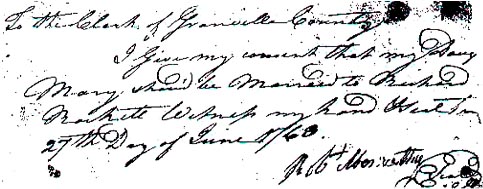 To the Clark of Granville County
I Give my consent that my Daug
Mary should be Married to Richard
Witness my hand & Seal
27th Day of June 1763.
Robt